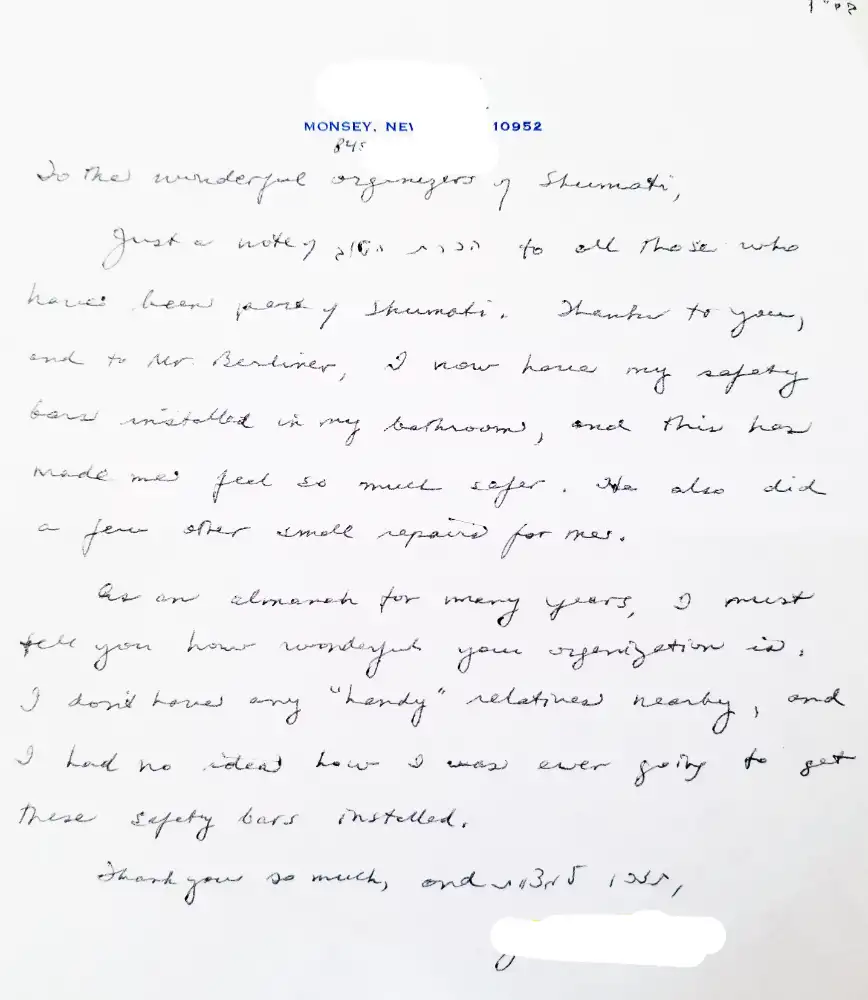 MONSEY, 10952
845
To the wonderful organizers of Shumati,
Just a note of הכרת הטוב to all those who
have been part of Shumati. Thanks to you,
and to Mr. Berliner, I now have my safety
bars installed in my bathroom, and this has
made me feel so much safer. He also did
a few other small repairs for me.
As an almanah for many years, I must
tell you how wonderful your organization is.
I don't have any "handy" relatives nearby, and
I had no idea how I was ever going to get
these safety bars installed.
Thank you so much, and תזכו למצוות,